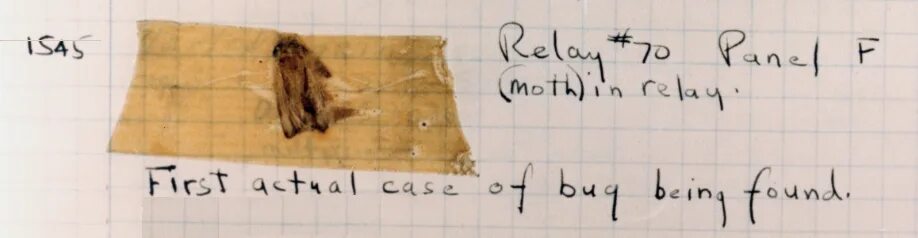 1545 Relay #70 Panel F
(moth) in relay.
First actual case of bug being found.